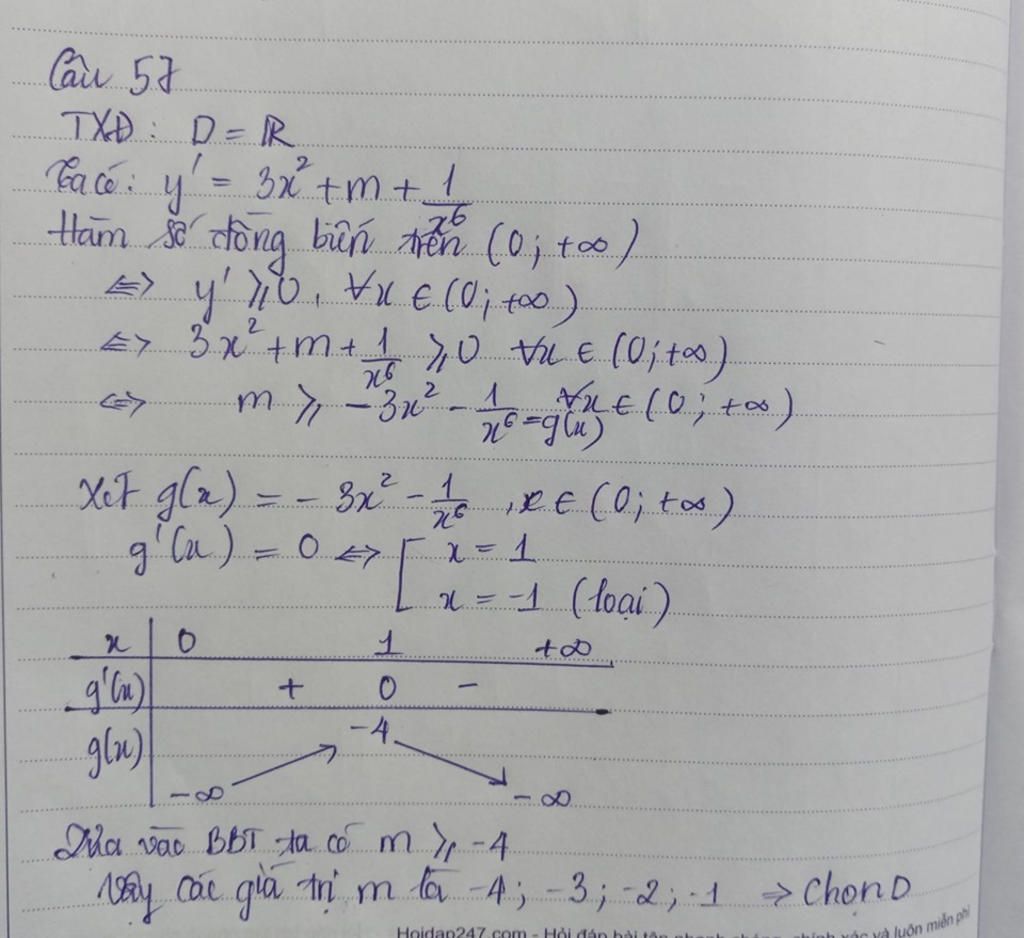 Câu 57
TXĐ: D = ℝ
Ta có: y' = 3x² + m + 1/x⁶
Hàm số đồng biến trên (0; +∞)
⇔ y' ≥ 0, ∀x ∈ (0; +∞)
⇔ 3x² + m + 1/x⁶ ≥ 0 ∀x ∈ (0; +∞)
⇔ m ≥ -3x² - 1/x⁶ = g(x) ∀x ∈ (0; +∞)
Xét g(x) = -3x² - 1/x⁶, x ∈ (0; +∞)
g'(x) = 0 ⇔ [ x = 1
x = -1 (loại)
x 0 1 +∞
g'(x) + 0 -
g(x) -4
-∞ -∞
Dựa vào BBT ta có m ≥ -4
Vậy các giá trị m là -4; -3; -2; -1 ⇒ Chọn D
Hoidap247.com - Hỏi đáp bài tập nhanh chóng, chính xác và luôn miễn phí